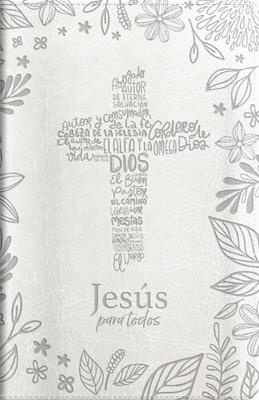 Abogado
AUTOR
DE ETERNA
SALVACIÓN
Autor y consumador
de la fe
Cordero de
CABEZA DE LA IGLESIA
EL ALFA Y LA OMEGA
Dios
El autor de
la vida
DIOS
El Buen
Pastor
EL CAMINO
Libertador
MESÍAS
El Verbo
Jesús
para todos